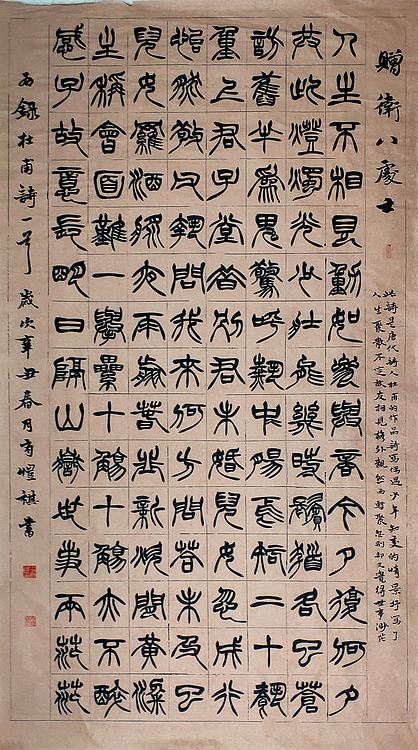 贈衛八處士
此詩是唐代詩人杜甫的作品詩寫偶遇少年知交的情景抒寫了
人生聚散不定故友相見格外親然而暫聚忽別卻又覺得世事渺茫
人生不相見動如參與商今夕復何夕
共此燈燭光少壯能幾時鬢髮各已蒼
訪舊半為鬼驚呼熱中腸焉知二十載
重上君子堂昔別君未婚兒女忽成行
怡然敬父執問我來何方問答未及已
兒女羅酒漿夜雨剪春韭新炊間黃粱
主稱會面難一舉累十觴十觴亦不醉
感子故意長明日隔山嶽世事兩茫茫
右錄杜甫詩一首 歲次辛丑春月方愷祺書